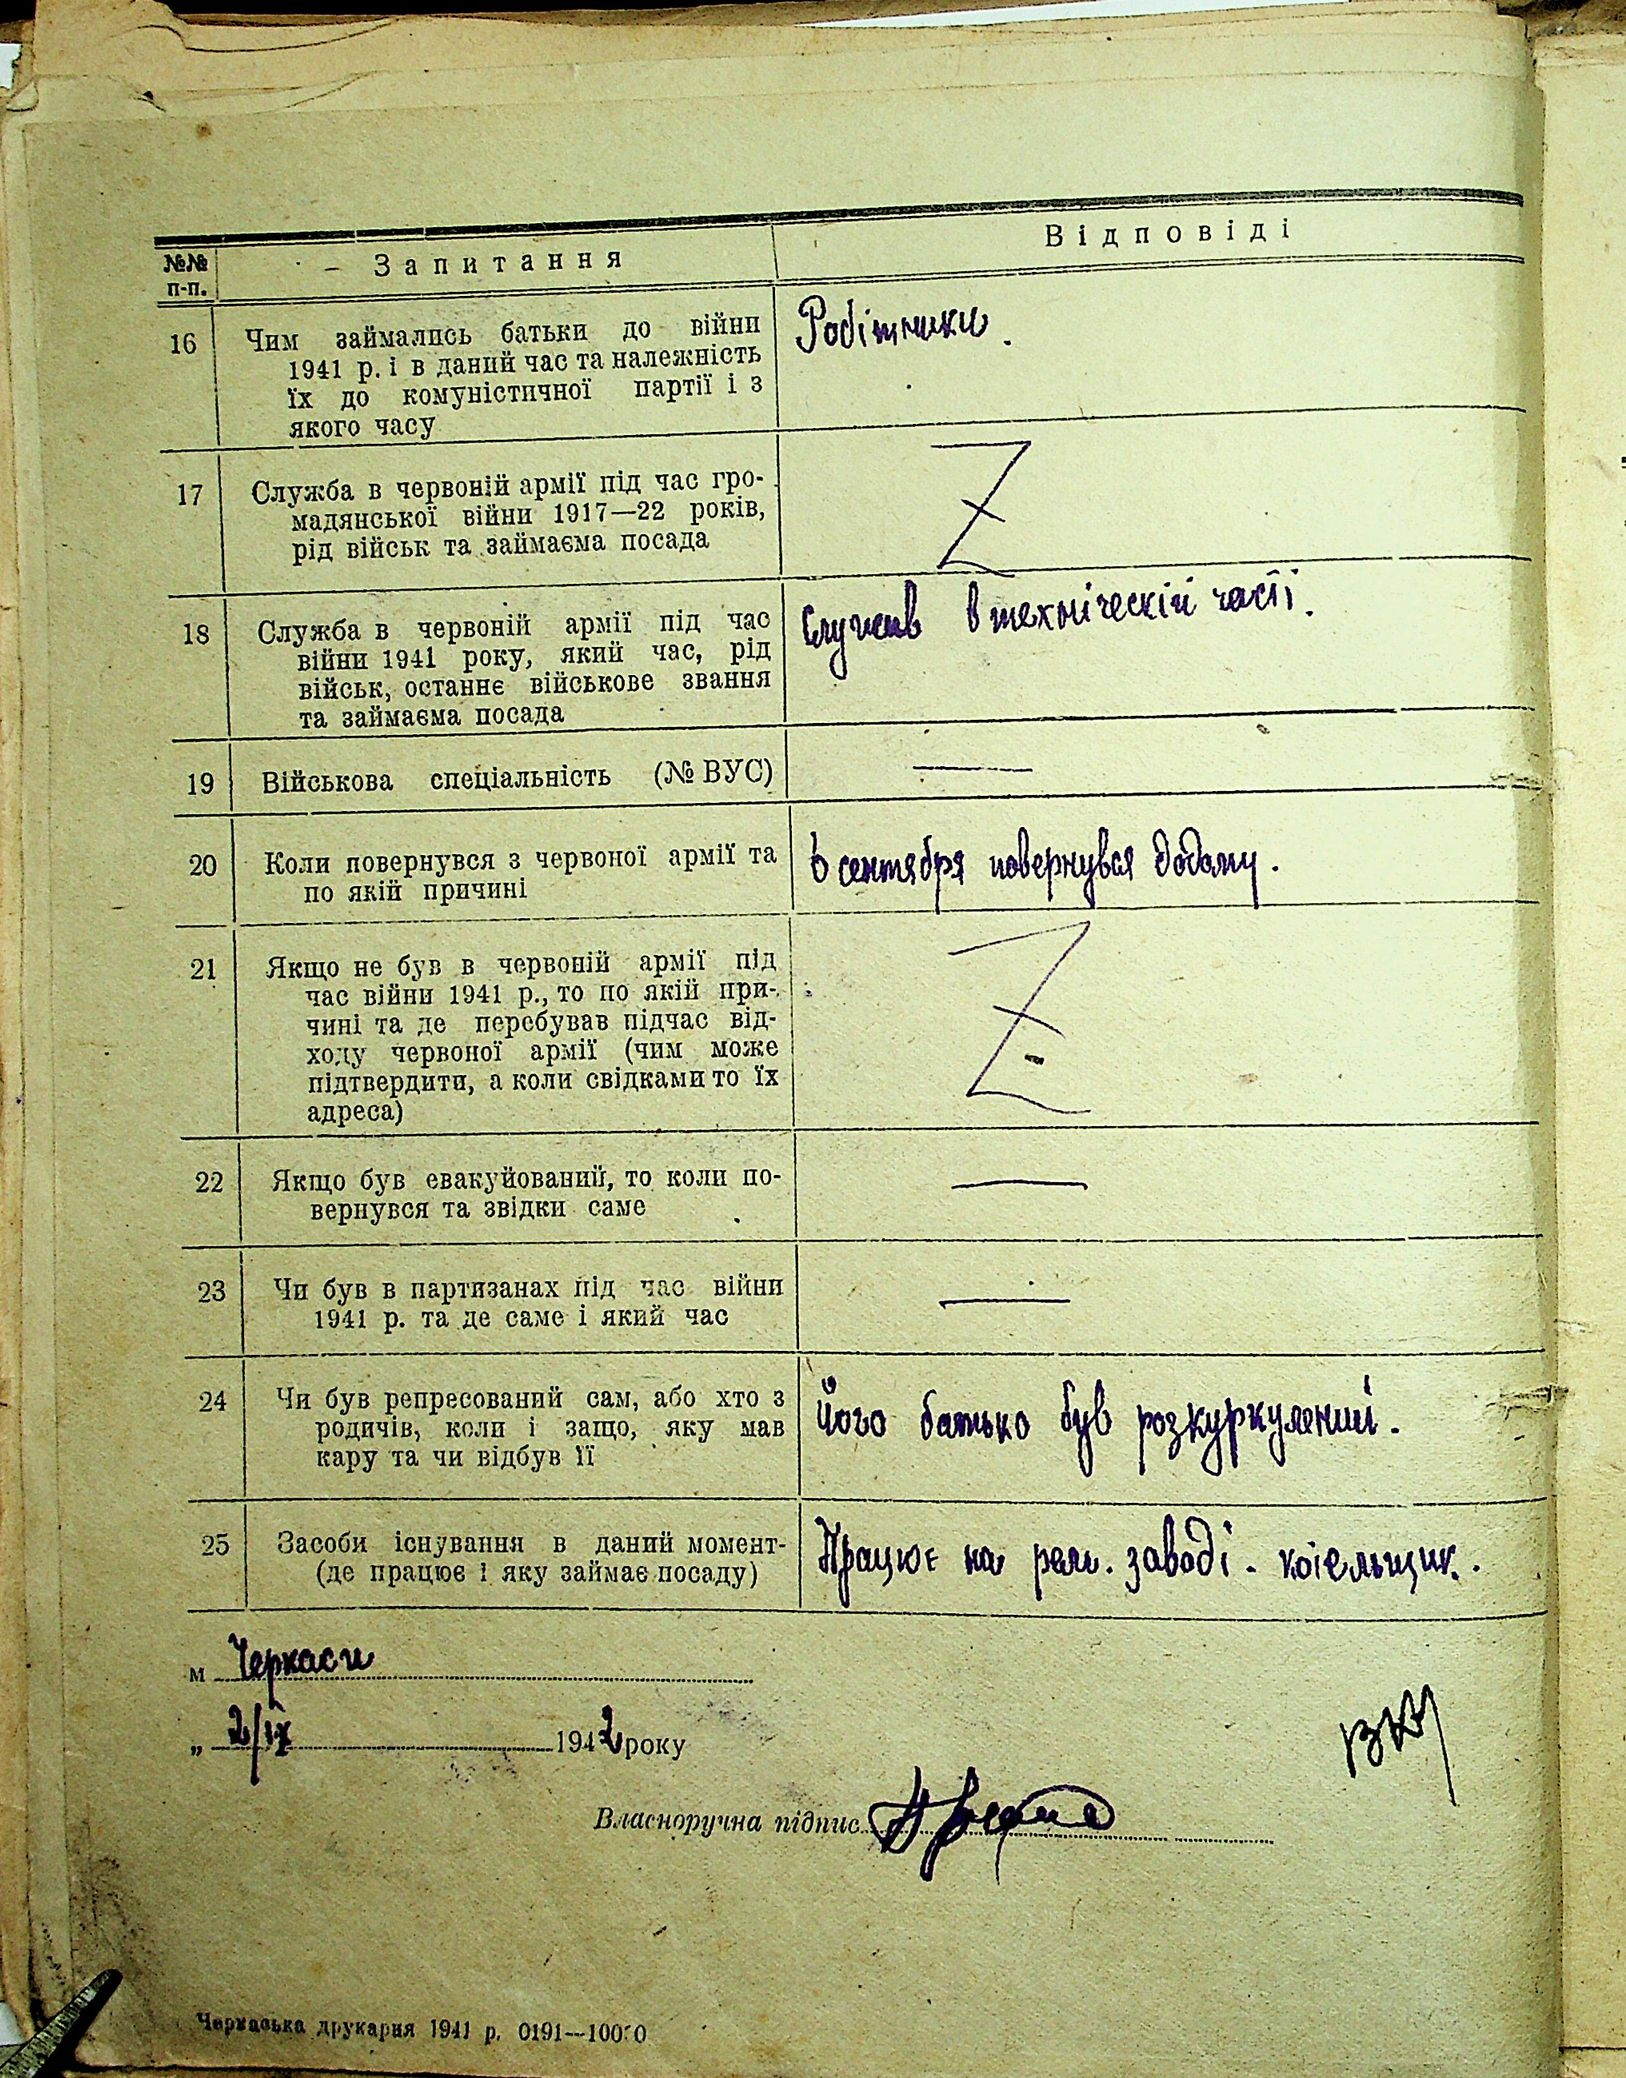 №№ п-п.
Запитання
Відповіді
16
Чим займались батьки до війни
1941 р. і в даний час та належність
їх до комуністичної партії і з
якого часу
Робітники.
17
Служба в червоній армії під час гро-
мадянської війни 1917—22 років,
рід військ та займаєма посада
Z
18
Служба в червоній армії під час
війни 1941 року, який час, рід
військ, останнє військове звання
та займаєма посада
Служив в техніческій часті.
19
Військова спеціальність (№ ВУС)
—
20
Коли повернувся з червоної армії та
по якій причині
в сентября повернувся додому.
21
Якщо не був в червоній армії під
час війни 1941 р., то по якій при-
чині та де перебував підчас від-
ходу червоної армії (чим може
підтвердити, а коли свідками то їх
адреса)
Z
22
Якщо був евакуйований, то коли по-
вернувся та звідки саме
—
23
Чи був в партизанах під час війни
1941 р. та де саме і який час
—
24
Чи був репресований сам, або хто з
родичів, коли і защо, яку мав
кару та чи відбув її
Його батько був розкуркулений.
25
Засоби існування в даний момент-
(де працює і яку займає посаду)
Працює на рем. заводі. котельщик.
м Черкаси
„ 2/ІХ 1942 року
Власноручна підпис
Черкаська друкарня 1941 р. 0191—10000